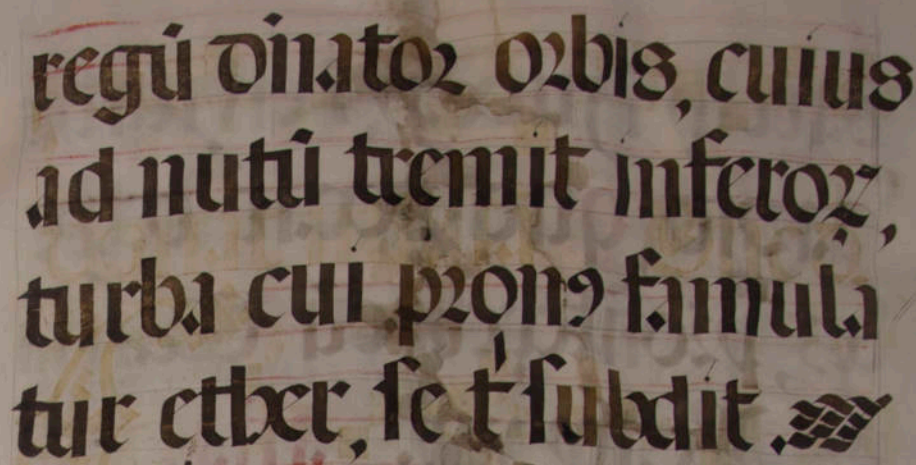 regū dn̄ator orbis, cuius
ad nutū tremit inferoꝝ,
turba cui pronꝰ famula
tur ether, se t᷑ subdit